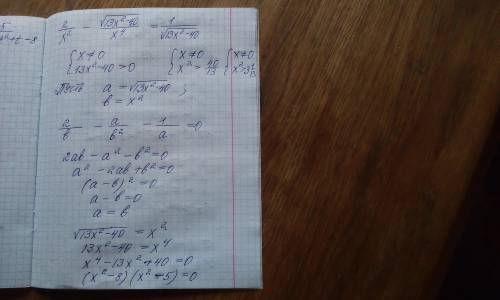 2/x² - √(13x²-40)/x⁴ = 1/√(13x²-40)
{x≠0 {x≠0 {x≠0
{13x²-40>0 {x²>40/13
Пусть a=√(13x²-40);
b=x²
2/b - a/b² - 1/a =0
2ab-a²-b²=0
a²-2ab+b²=0
(a-b)²=0
a-b=0
a=b
√(13x²-40) = x²
13x²-40=x⁴
x⁴-13x²+40=0
(x²-8)(x²-5)=0